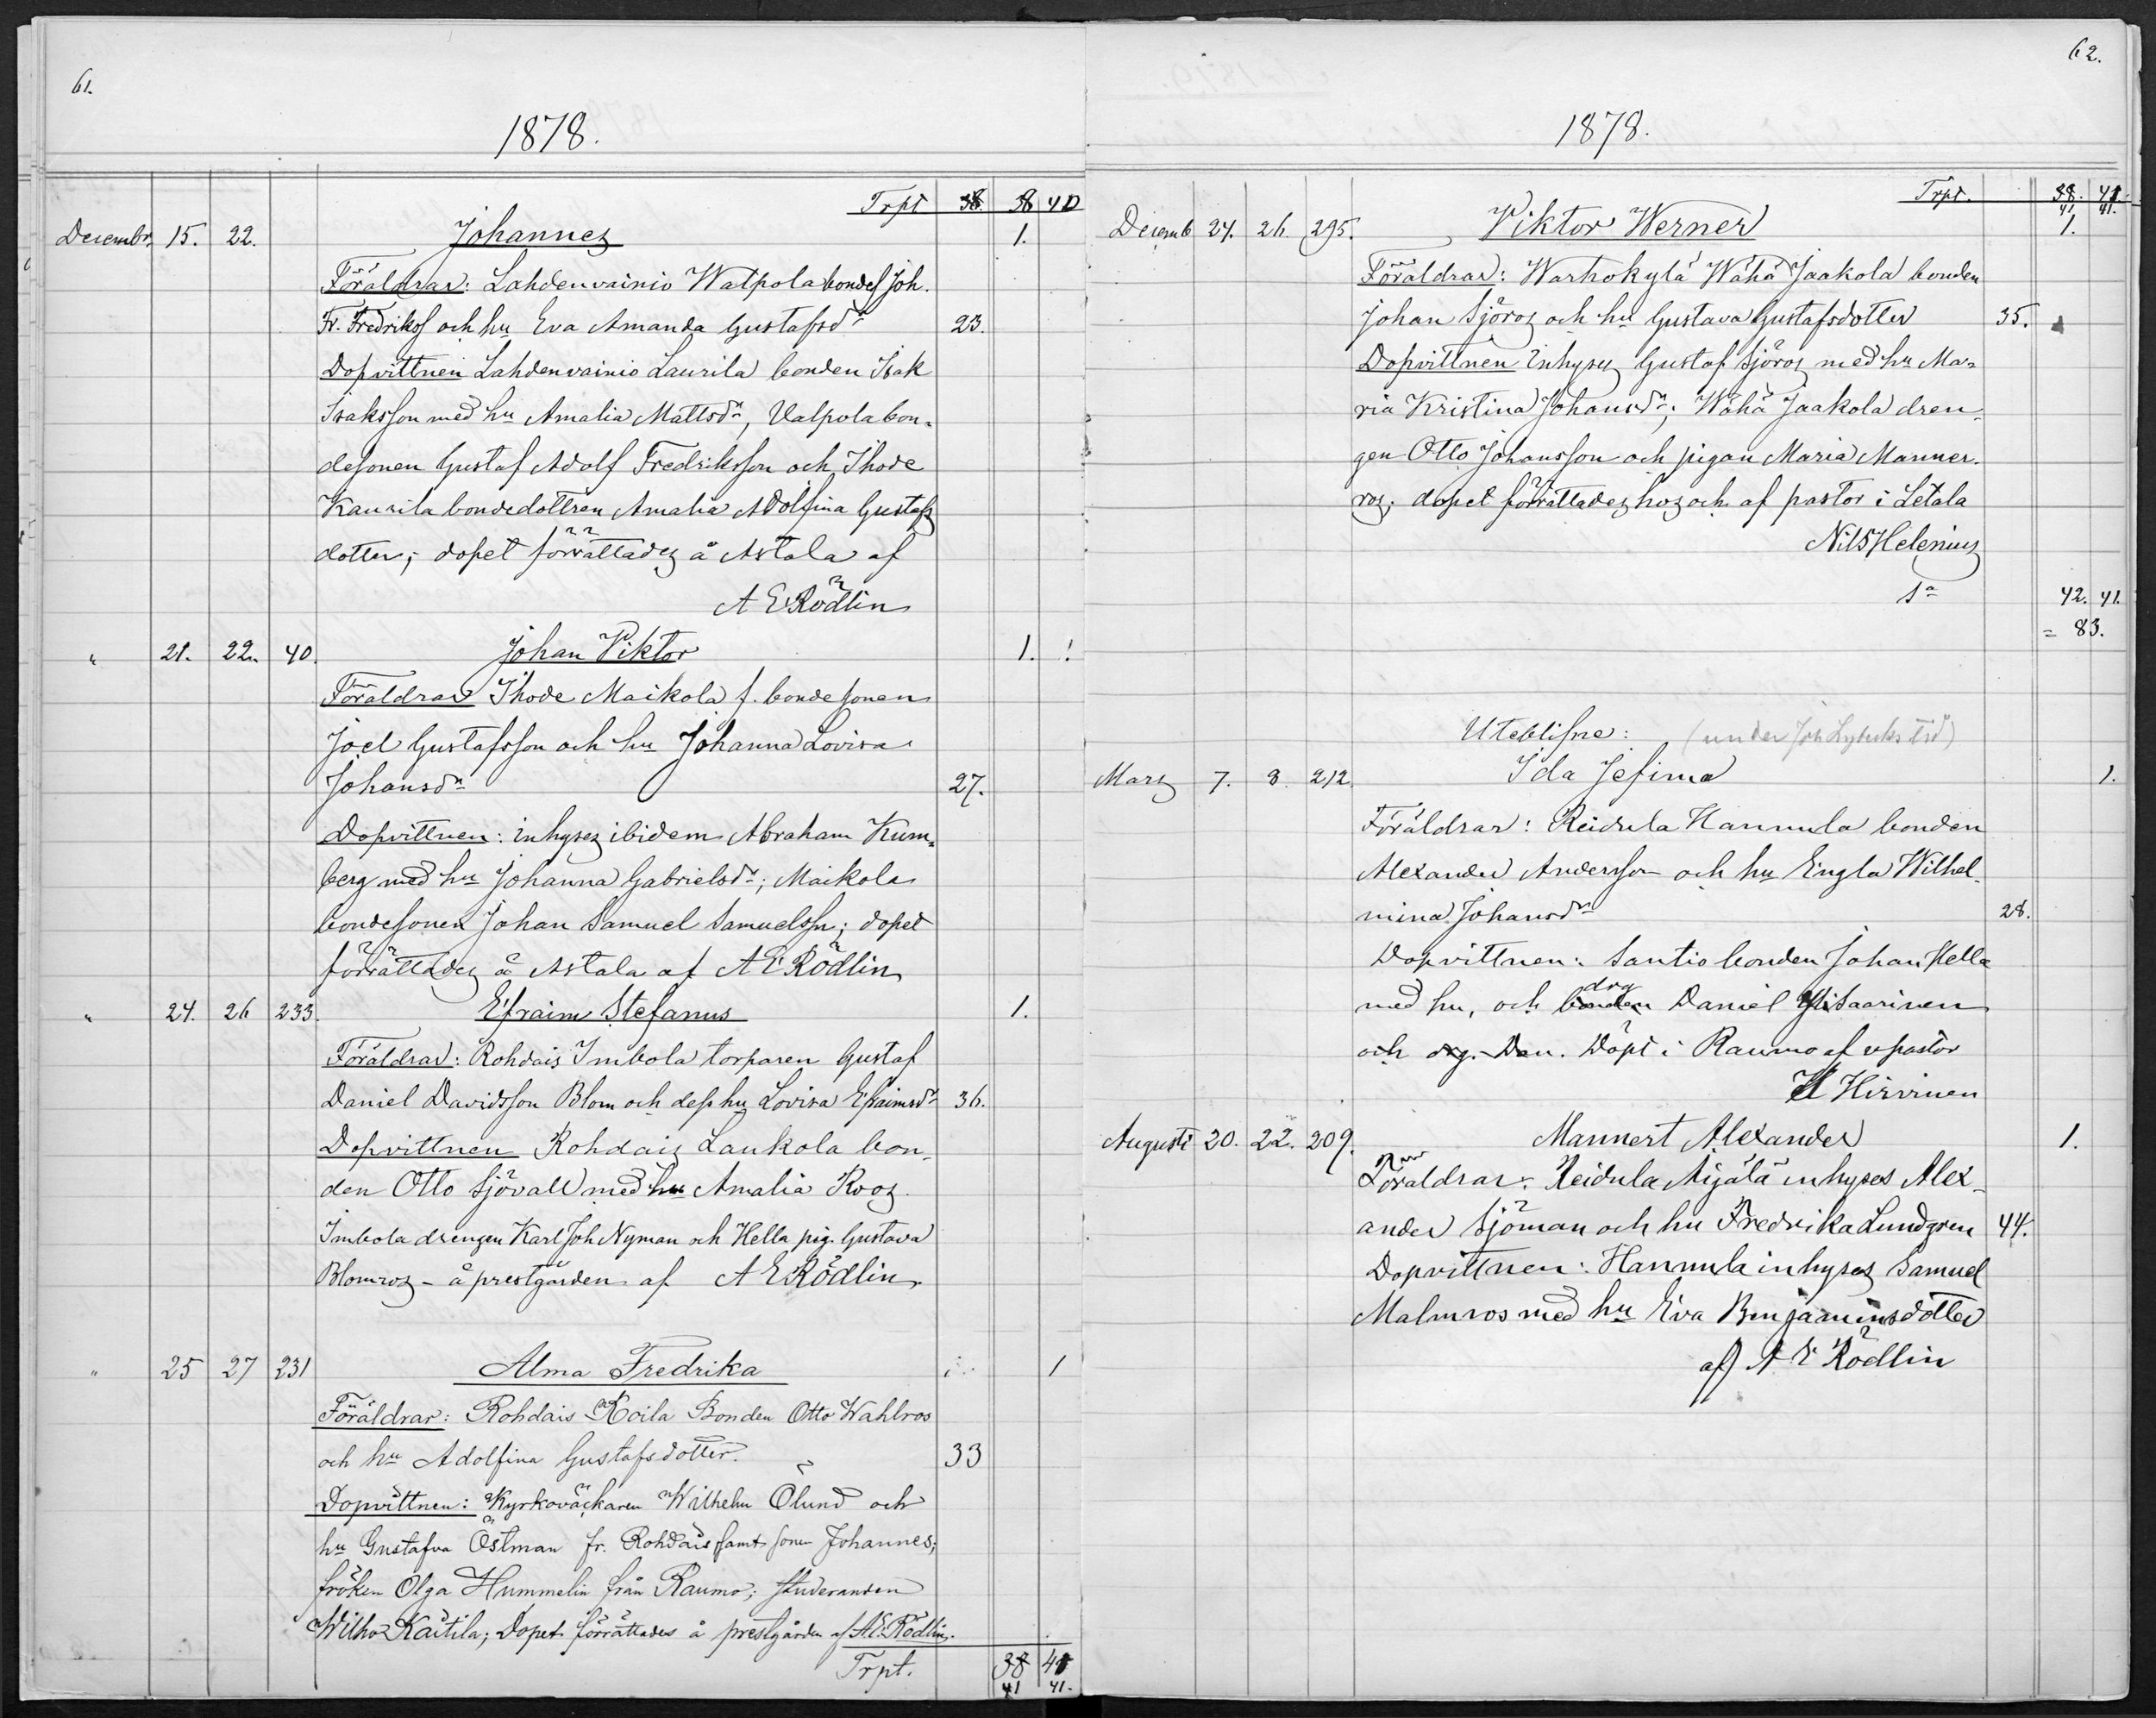 61.
1878.
Trpt 38 38 40
Decembr. 15. 22. Johannes 1.
Föräldrar: Lahdenvainio Walpola bondes Joh.
Fr. Fredrikss och hu Eva Amanda Gustafsdr 23.
Dopvittnen Lahdenvainio Laurila bonden Isak
Isaksson med hu Amalia Mattsdr, Valpola bon-
desonen Gustaf Adolf Fredriksson och Ihode
Kaurila bondedottren Amalia Adolfina Gustafs
dotter; dopet förrättades å Astala af
A E Rödlin
" 21. 22. 40. Johan Viktor 1. !
Föräldrar Ihode Maikola f. bondesonen
Joel Gustafsson och hu Johanna Lovisa
Johansdr 27.
Dopvittnen: inhyses ibidem Abraham Kum-
berg med hu Johanna Gabrielsdr; Maikola
bondesonen Johan Samuel Samuelsson; dopet
förrättades å Astala af A E Rödlin
" 24. 26 233. Efraim Stefanus 1.
Föräldrar: Rohdais Imbola torparen Gustaf
Daniel Davidsson Blom och dess hu Lovisa Efraimsdr 36.
Dopvittnen Rohdais Laukola bon-
den Otto Sjövall med hu Amalia Roos.
Imbola drengen Karl Joh Nyman och Hella pig. Gustava
Blomros - å prestgården af A E Rödlin
" 25 27 231 Alma Fredrika 1
Föräldrar: Rohdais Koila Bonden Otto Wahlros
och hu Adolfina Gustafsdotter. 33
Dopvittnen: Kyrkoväckaren Wilhelm Ölund och
hu Gustafva Östman fr. Rohdais samt sonen Johannes;
fröken Olga Hummelin från Raumo; studeranden
Wilho Kaitila; Dopet förrättades å prestgården af A.E. Rödlin.
Trpt. 38 41
41 41.
62.
1878.
Trpt. 38. 41.
41. 41.
Decemb 24. 26. 295. Viktor Werner 1.
Föräldrar: Warhokylä Wähä Jaakola bonden
Johan Sjöros och hu Gustava Gustafsdotter 35.
Dopvittnen Inhyses Gustaf Sjöros med hu Ma-
ria Kristina Johansdr; Wähä Jaakola dren-
gen Otto Johansson och pigan Maria Manner-
ros; dopet förrättades hos och af pastor i Letala
Nils Helenius
Sa 42. 41.
= 83.
Uteblifne: (under Joh Lybecks tid)
Mars 7. 8. 212. Ida Jefima 1.
Föräldrar: Reidula Hannula bonden
Alexander Andersson och hu Engla Wilhel-
mina Johansdr 28.
Dopvittnen: Santio bonden Johan Hella
med hu, och bonden drg Daniel Yli Saarinen
och drg. Dan. Döpt i Raumo af v pastor
K Hirvinen
Augusti 20. 22. 209. Mannert Alexander 1.
Föräldrar: Reidula Äijälä inhyses Alex-
ander Sjöman och hu Fredrika Lundgren 44.
Dopvittnen: Hannula inhyses Samuel
Malmros med hu Eva Benjaminsdotter
af A E Rödlin